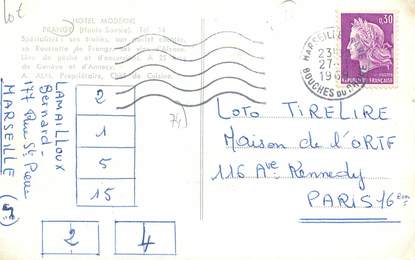 lot
HOTEL MODERNE
FRANGY (Haute Savoie) Tél. 14
Spécialités : ses truites, son poulet
sa Roussette de Frangy, ses vins d'Alsace.
Lieu de pêche et d'excursion. A 25 kms
de Genève et d'Annecy.
Propriétaire, Chef de Cuisine.
LAMAILLOUX
Bernard
177 Rue St Pierre
MARSEILLE
2
1
5
15
2
4
74)
MARSEILLE
BOUCHES DU
0,30
REPUBLIQUE FRANÇAISE
LOTO TIRELIRE
Maison de l'ORTF
116 Ave Kennedy
PARIS 16 em